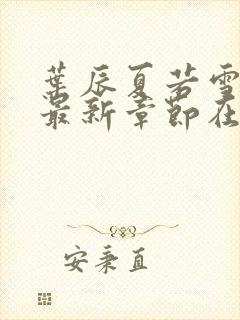 葉辰夏若雪
最新章節在
安秉直